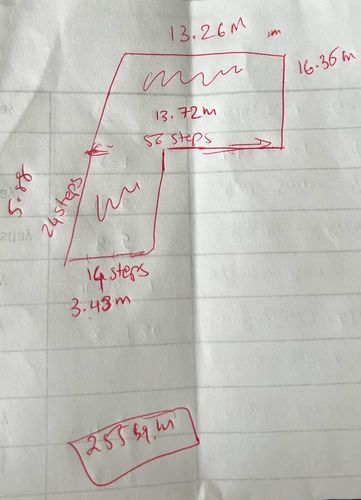 13.26M
m
16.36 m
13.72m
56 steps
5.88
24 steps
14 steps
3.43 m
255 sq.m